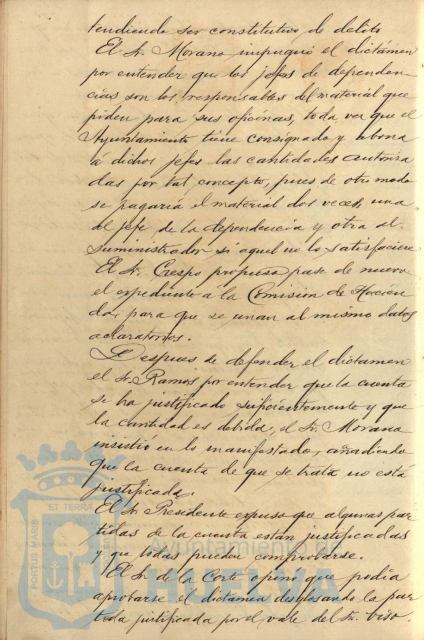 tendiendo ser constitutivo de delito
El Sr. Morano impugnó el dictámen
por entender que los jefes de dependen-
cias son los responsables del material que
piden para sus oficinas, toda vez que el
Ayuntamiento tiene consignado y abona
á dichos jefes las cantidades autoriza
das por tal concepto, pues de otro modo
se pagaria el material dos veces, una
al jefe de la dependencia y otra al
suministrador si aquel no lo satisfaciere
El Sr. Crespo propuso pase de nuevo
el expediente á la Comision de Hacien
da, para que se unan al mismo datos
aclaratorios.
Despues de defender el dictamen
el Sr. Ramos por entender que la cuenta
se ha justificado suficientemente y que
la cantidad es debida, el Sr. Morano
insistió en lo manifestado, añadiendo
que la cuenta de que se trata no está
justificada.
El Sr. Presidente expuso que algunas par
tidas de la cuenta están justificadas
y que todas pueden comprobarse.
El Sr. de la Corte opinó que podia
aprobarse el dictamen desglosando la par
tida justificada por el vale del Sr.
PORTUS MARIS
ET TERRÆ
Ayuntamiento de
HUELVA